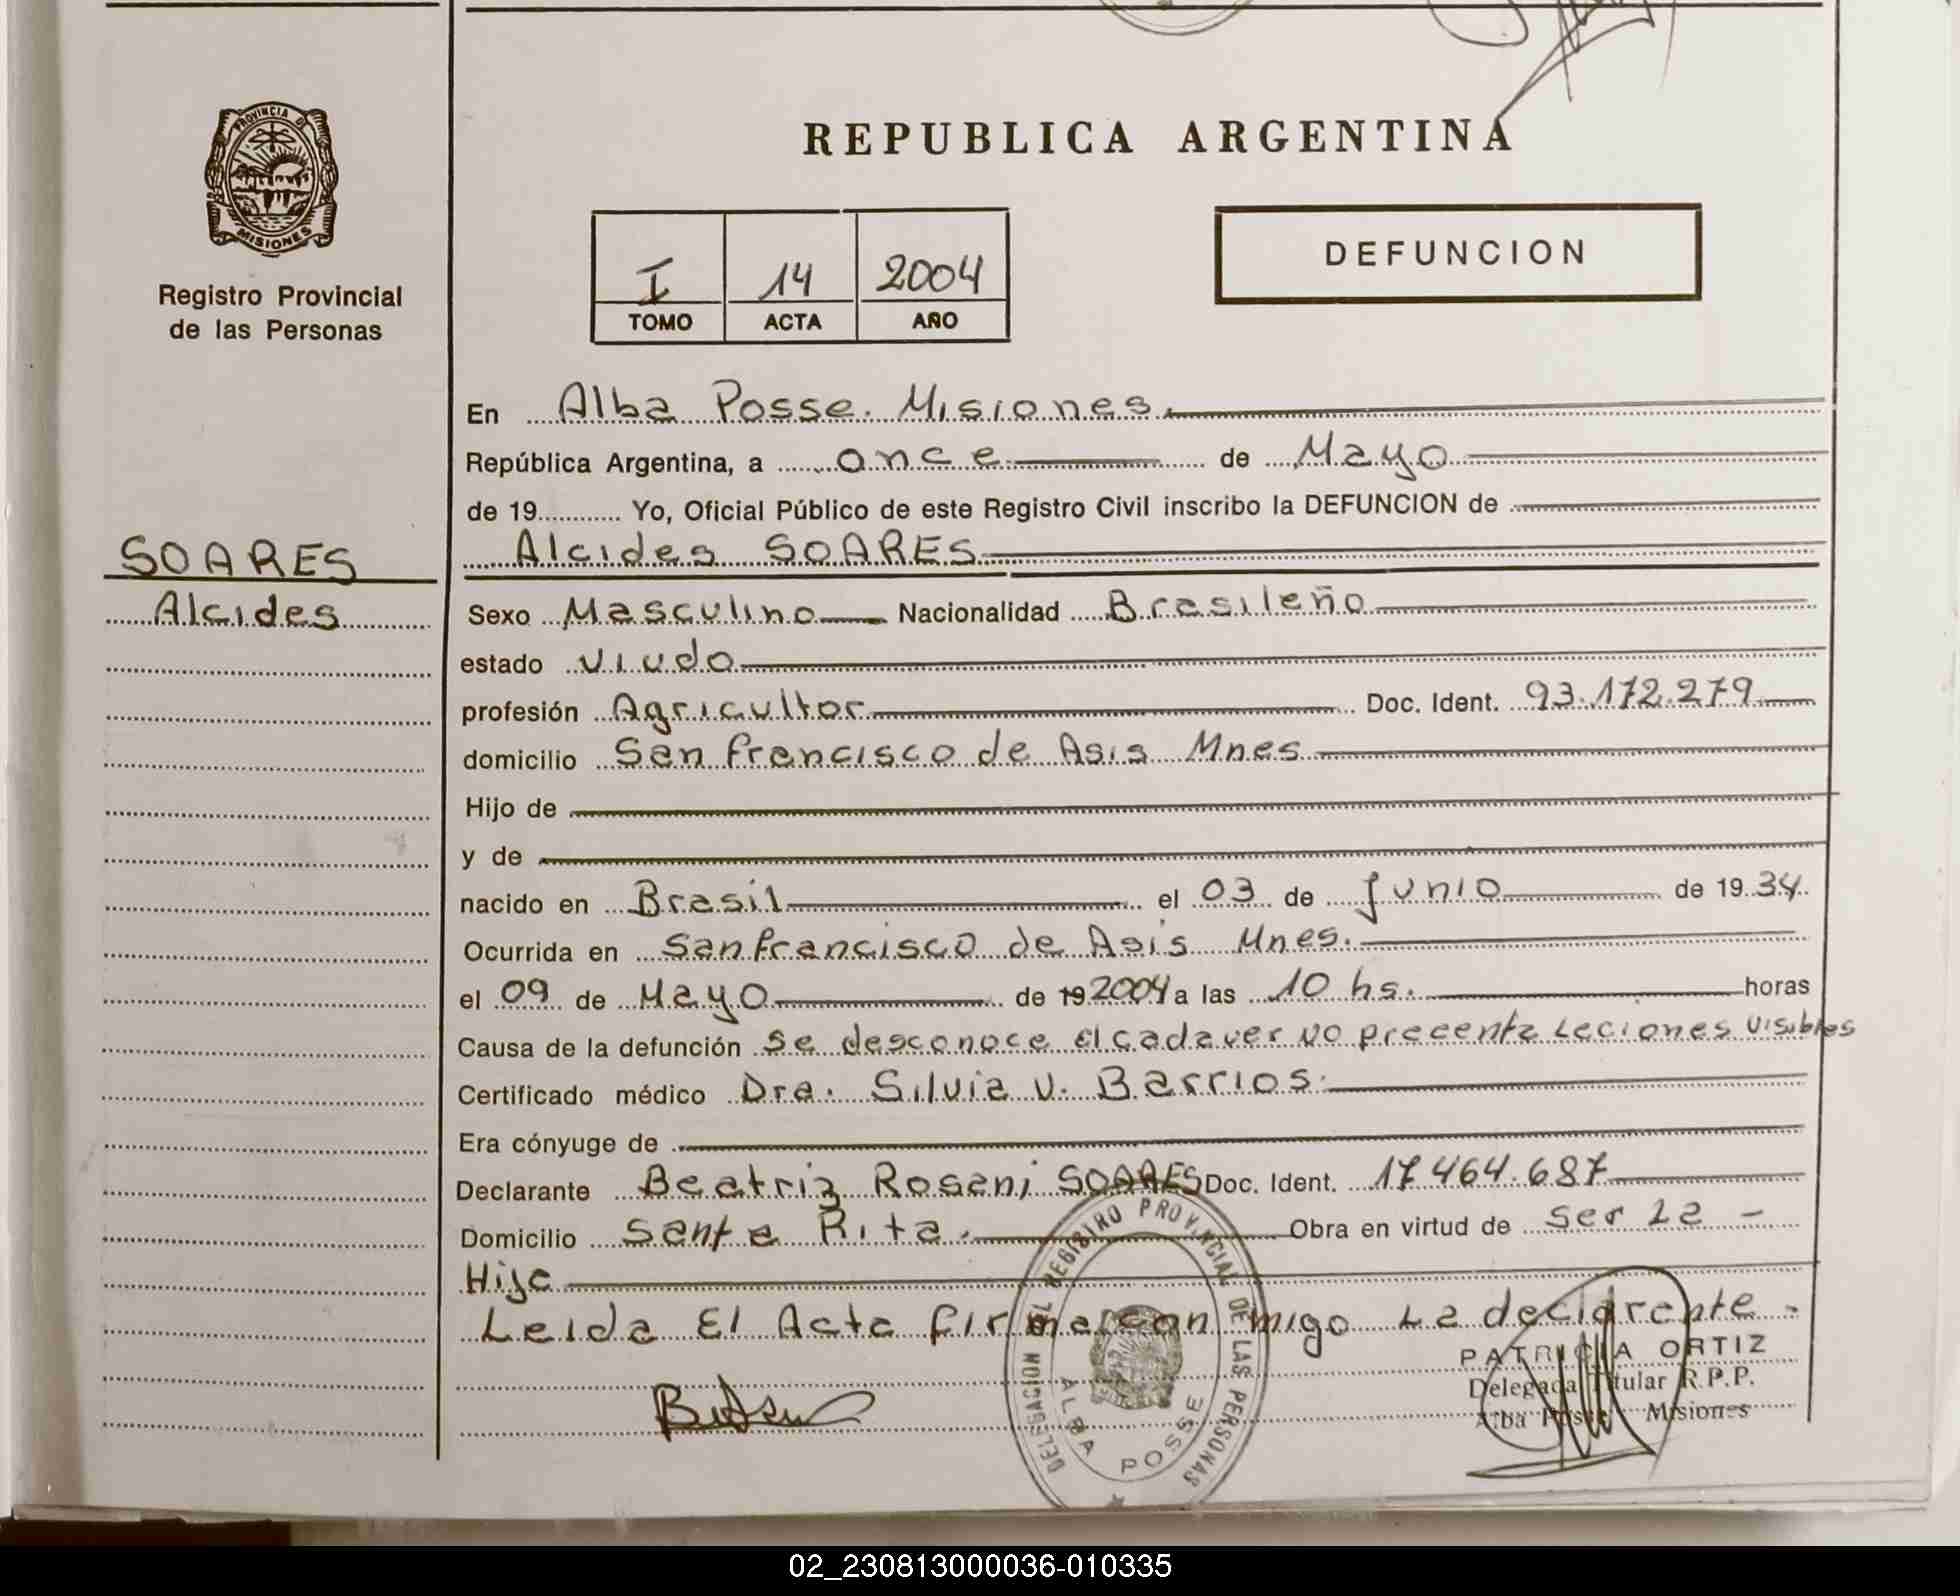 PROVINCIA D
MISIONES
Registro Provincial
de las Personas
REPUBLICA ARGENTINA
I 14 2004
TOMO ACTA AÑO
DEFUNCION
En Alba Posse. Misiones.
República Argentina, a once de Mayo
de 19 Yo, Oficial Público de este Registro Civil inscribo la DEFUNCION de
SOARES
Alcides
Alcides SOARES
Sexo Masculino Nacionalidad Brasileño
estado viudo
profesión Agricultor Doc. Ident. 93.172.279
domicilio San francisco de Asis Mnes
Hijo de
y de
nacido en Brasil el 03 de junio de 1934
Ocurrida en San francisco de Asis Mnes.
el 09 de Mayo de 19 2004 a las 10 hs. horas
Causa de la defunción se desconoce El cadaver no precenta Leciones visibles
Certificado médico Dra. Silvia V. Barrios.
Era cónyuge de
Declarante Beatriz Roseni SOARES Doc. Ident. 17464.687
Domicilio Santa Rita. Obra en virtud de ser La -
Hija
Leida El Acta firma con migo La declarante -
DELEGACION DEL REGISTRO PROVINCIAL DE LAS PERSONAS
ALBA POSSE
PATRICIA ORTIZ
Delegada Titular R.P.P.
Alba Posse Misiones
02_230813000036-010335